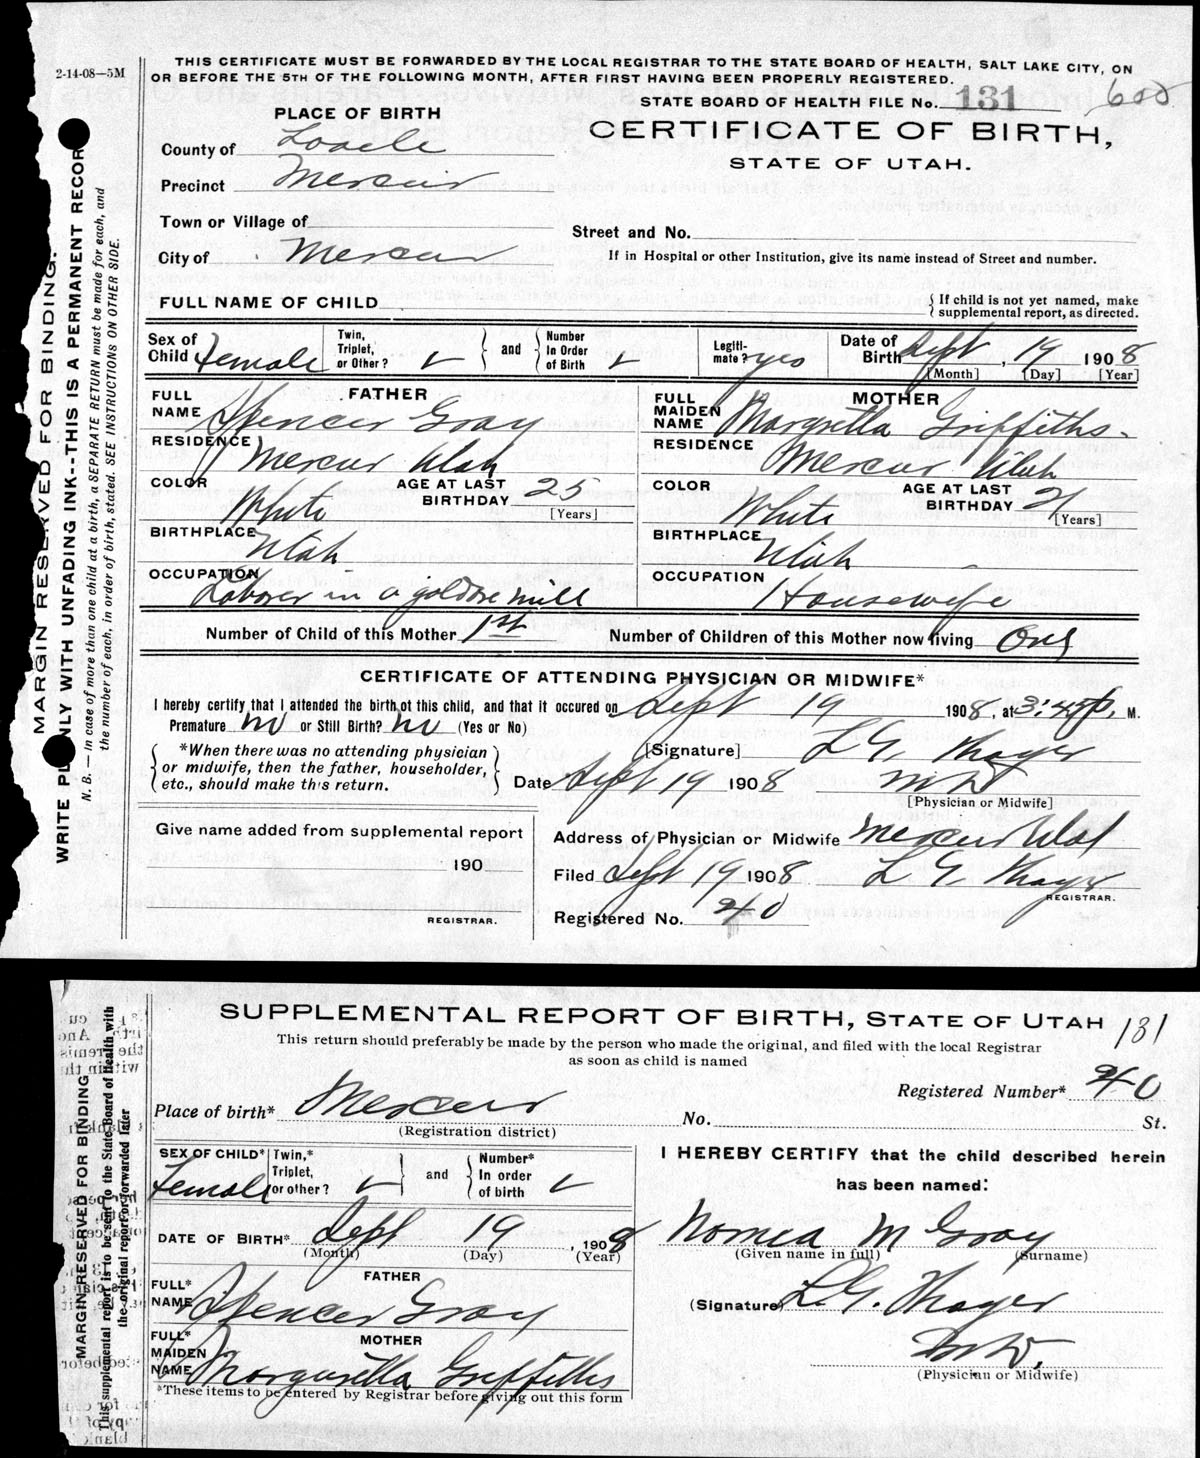 2-14-08—5M
THIS CERTIFICATE MUST BE FORWARDED BY THE LOCAL REGISTRAR TO THE STATE BOARD OF HEALTH, SALT LAKE CITY, ON
OR BEFORE THE 5TH OF THE FOLLOWING MONTH, AFTER FIRST HAVING BEEN PROPERLY REGISTERED.
STATE BOARD OF HEALTH FILE No. 131 600
PLACE OF BIRTH
CERTIFICATE OF BIRTH,
STATE OF UTAH.
County of Tooele
Precinct Mercur
Town or Village of
Street and No.
City of Mercur
If in Hospital or other Institution, give its name instead of Street and number.
FULL NAME OF CHILD
{ If child is not yet named, make
supplemental report, as directed.
Sex of Child Female
Twin, Triplet, or Other? ✓ } and { Number In Order of Birth ✓
Legitimate? yes
Date of Birth Sept, 19 1908
[Month] [Day] [Year]
FATHER
FULL NAME Spencer Gray
RESIDENCE Mercur Utah
COLOR White
AGE AT LAST BIRTHDAY 25
[Years]
BIRTHPLACE Utah
OCCUPATION Laborer in a gold ore mill
MOTHER
FULL MAIDEN NAME Margretta Griffiths
RESIDENCE Mercur Utah
COLOR White
AGE AT LAST BIRTHDAY 21
[Years]
BIRTHPLACE Utah
OCCUPATION Housewife
Number of Child of this Mother 1st Number of Children of this Mother now living One
CERTIFICATE OF ATTENDING PHYSICIAN OR MIDWIFE*
I hereby certify that I attended the birth of this child, and that it occured on Sept 19 1908, at 3:45 P. M.
Premature no or Still Birth? no (Yes or No)
{ *When there was no attending physician
or midwife, then the father, householder,
etc., should make this return. }
[Signature] L G. Thayer
Date Sept 19 1908 M D
[Physician or Midwife]
Give name added from supplemental report
190
REGISTRAR.
Address of Physician or Midwife Mercur Utah
Filed Sept 19 1908 L G. Thayer
REGISTRAR.
Registered No. 40
MARGIN RESERVED FOR BINDING.
WRITE PLAINLY WITH UNFADING INK--THIS IS A PERMANENT RECORD
N. B. — In case of more than one child at a birth, a SEPARATE RETURN must be made for each, and
the number of each, in order of birth, stated. SEE INSTRUCTIONS ON OTHER SIDE.
SUPPLEMENTAL REPORT OF BIRTH, STATE OF UTAH 131
This return should preferably be made by the person who made the original, and filed with the local Registrar
as soon as child is named
Registered Number* 40
Place of birth* Mercur No. St.
(Registration district)
SEX OF CHILD* Female
Twin,* Triplet, or other? ✓ } and { Number* In order of birth ✓
DATE OF BIRTH* Sept 19, 1908
(Month) (Day) (Year)
FATHER
FULL* NAME Spencer Gray
MOTHER
FULL* MAIDEN NAME Margaretta Griffiths
*These items to be entered by Registrar before giving out this form
I HEREBY CERTIFY that the child described herein
has been named:
M Gray
(Given name in full) (Surname)
(Signature) L. G. Thayer
M D.
(Physician or Midwife)
MARGIN RESERVED FOR BINDING
This supplemental report is to be sent to the State Board of Health with
the original report for forwarded later